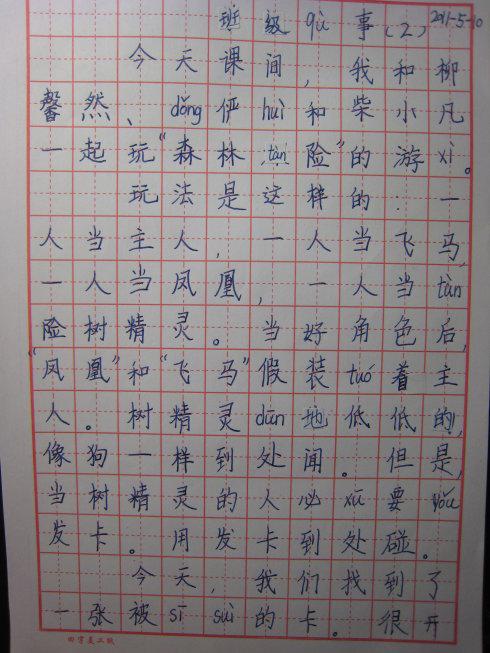 班级qù事(2) 2011-5-10
今天课间,我和柳
馨然、dǒng俨huì和柴小凡
一起玩“森林tàn险”的游xì。
玩法是这样的:一
人当主人,一人当飞马,
一人当凤凰,一人当tàn
险树精灵。当好角色后,
“凤凰”和“飞马”假装tuó着主
人。树精灵dūn地低低的,
像狗一样到处闻。但是,
当树精灵的人必xū要yǒu
发卡。用发卡到处碰。
今天,我们找到了
一张被sī suì的卡。很开
田字美工纸